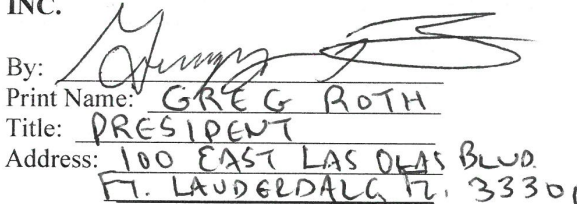 INC.
By:
Print Name: GREG ROTH
Title: PRESIDENT
Address: 100 EAST LAS OLAS BLVD.
FT. LAUDERDALE FL. 33301